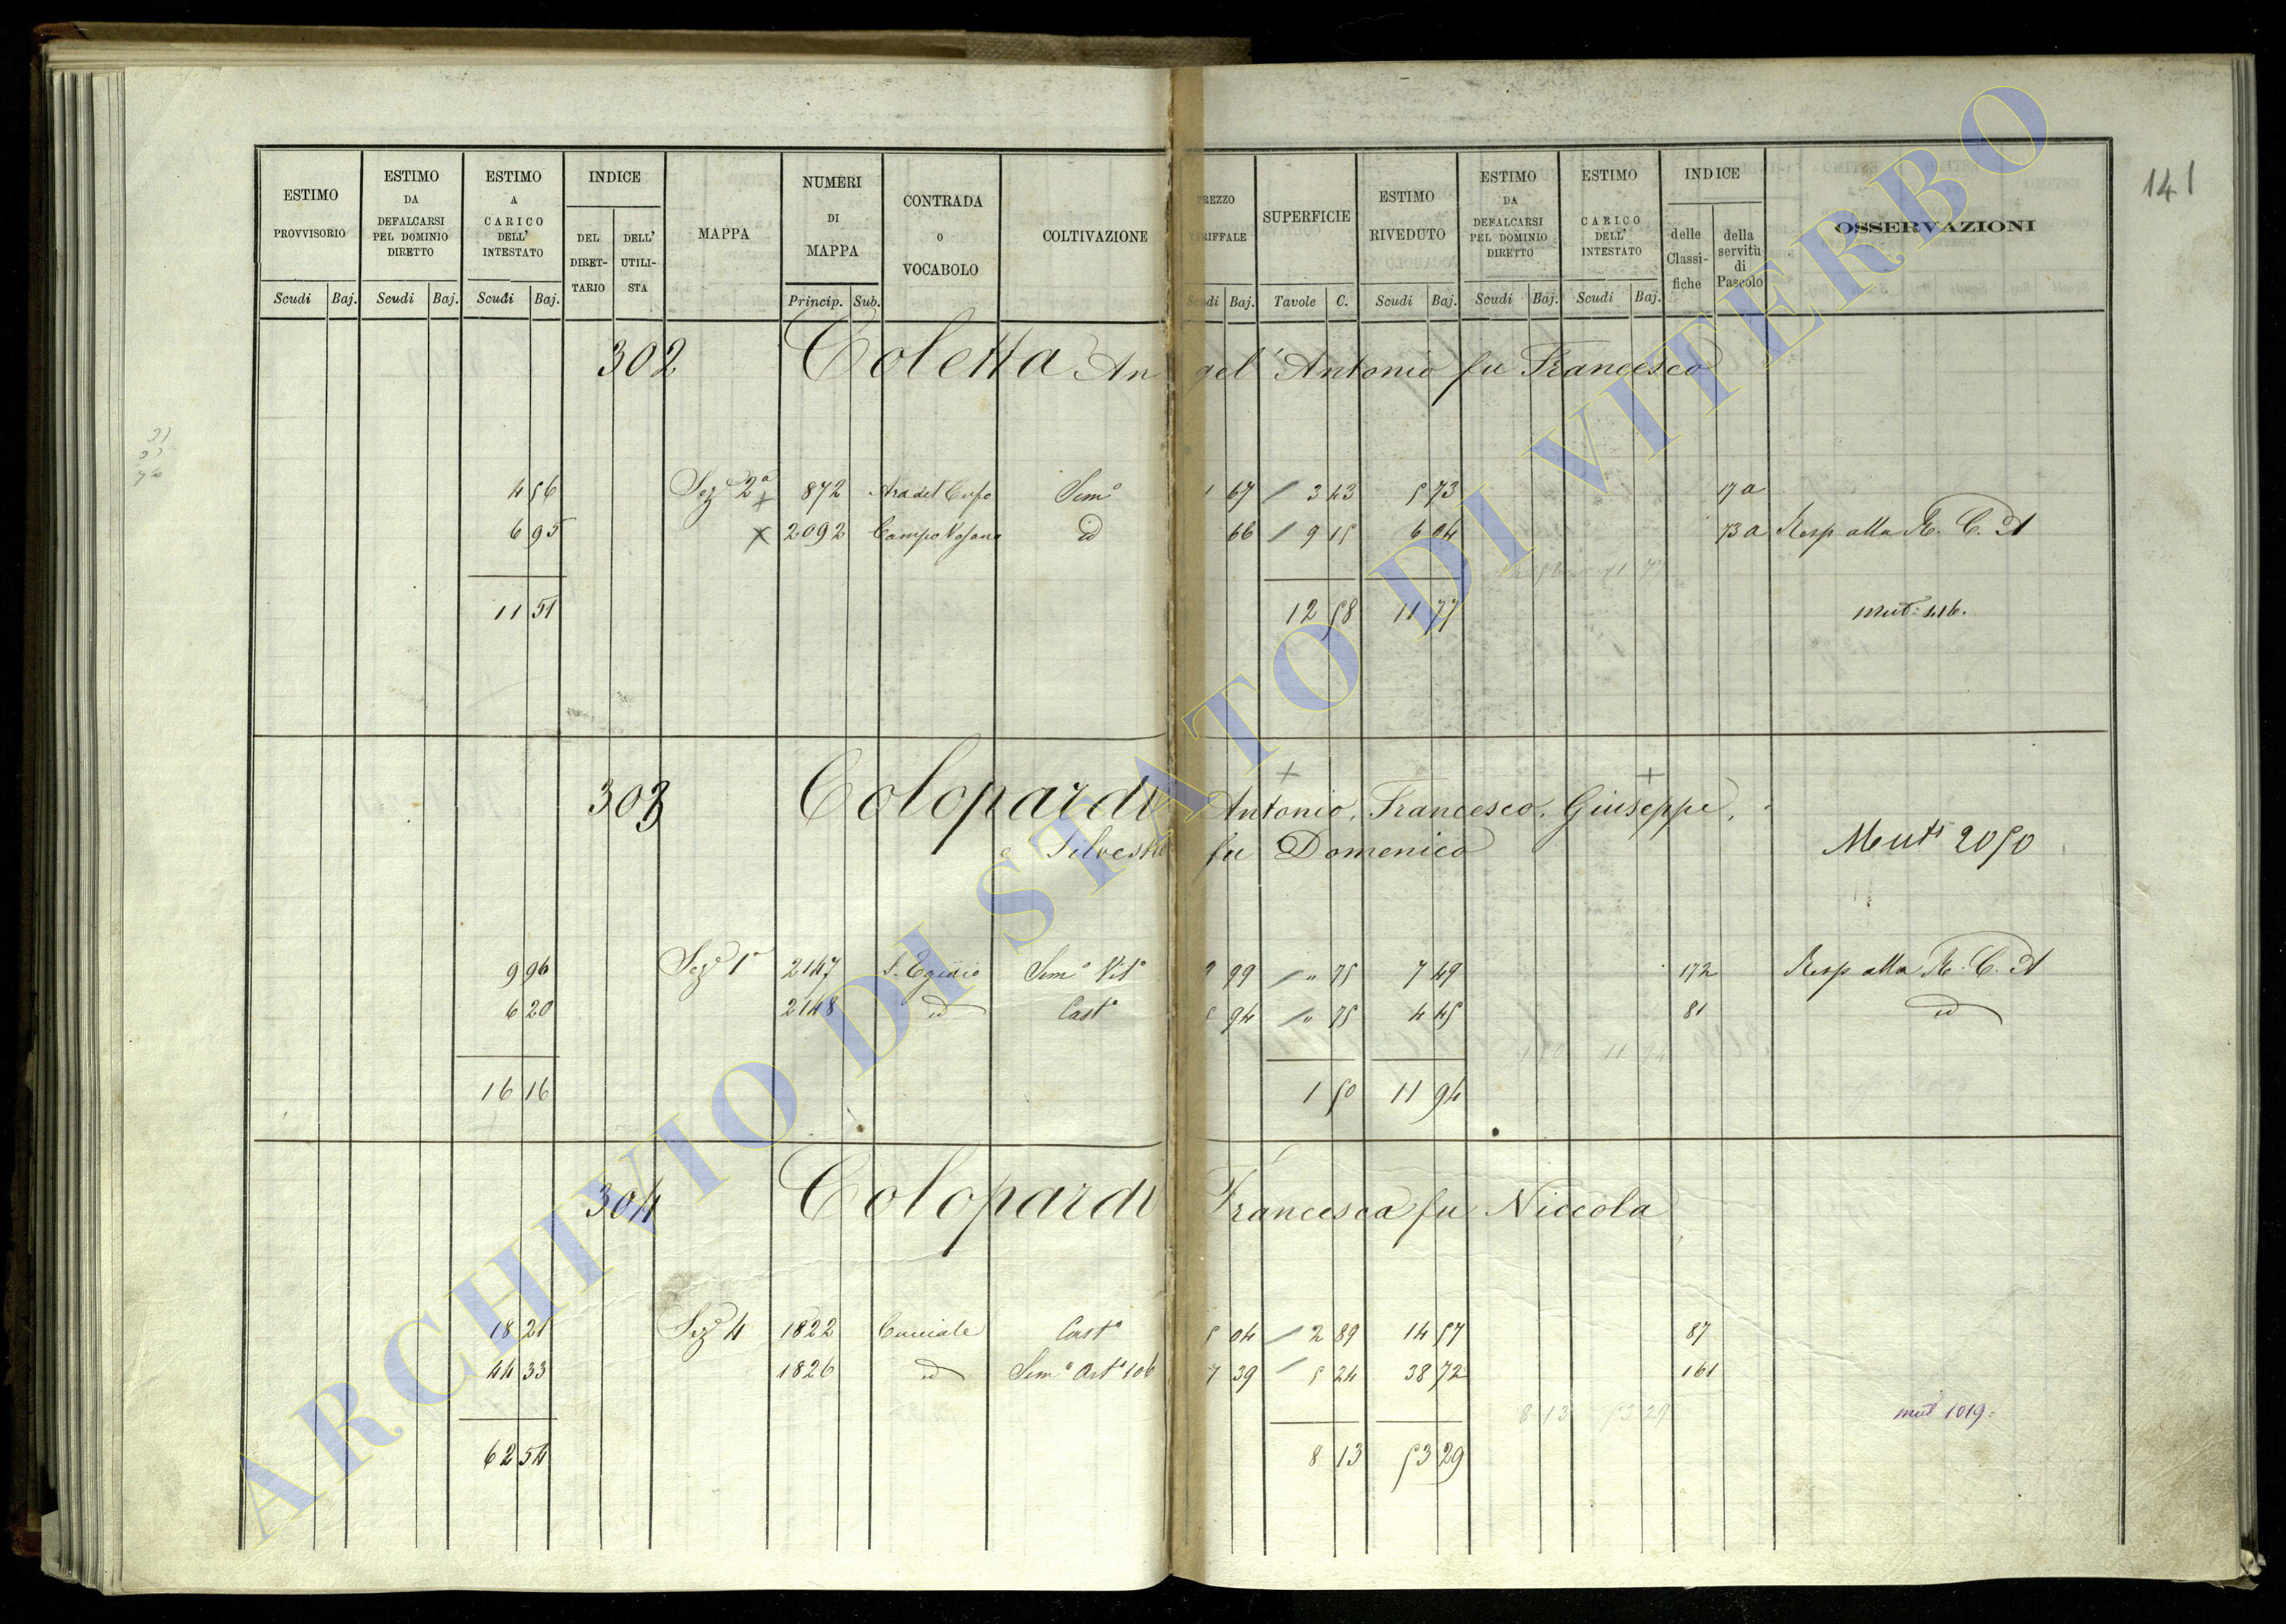 141
ESTIMO PROVVISORIO
ESTIMO DA DEFALCARSI PEL DOMINIO DIRETTO
ESTIMO A CARICO DELL' INTESTATO
INDICE
DEL DIRETTARIO
DELL' UTILISTA
MAPPA
NUMERI DI MAPPA
CONTRADA O VOCABOLO
COLTIVAZIONE
PREZZO TARIFFALE
SUPERFICIE
ESTIMO RIVEDUTO
ESTIMO DA DEFALCARSI PEL DOMINIO DIRETTO
ESTIMO CARICO DELL' INTESTATO
INDICE
delle Classifiche
della servitù di Pascolo
OSSERVAZIONI
Scudi Baj. Scudi Baj. Scudi Baj. Princip. Sub. Scudi Baj. Tavole C. Scudi Baj. Scudi Baj. Scudi Baj.
302 Coletta Angel' Antonio fu Francesco
4 56 Sez.e 2a 872 Ara del Sem.o 1 67 3 43 5 73 17 a
6 95 2092 Campo id 66 9 15 6 04 73 a Resp alla R. C. A
11 51 12 58 11 77 mut: 416.
303 Colopardi Antonio, Francesco, Giuseppe,
e Silvestro fu Domenico
Mut. 2050
9 96 Sez.e 1a 2147 S. Egidio Sem.o Vit.o 9 99 " 75 7 49 172 Resp alla R. C. A
6 20 2148 id Cast.o 5 94 " 75 4 45 81 id
16 16 1 50 11 94
304 Colopardi Francesca fu Niccola
18 21 Sez.e 4 1822 Cast.o 5 04 2 89 14 57 87
44 33 1826 id Sem.o 7 39 5 24 38 72 161
8 13 53 29
mut 1019
62 54 8 13 53 29
ARCHIVIO DI STATO DI VITERBO